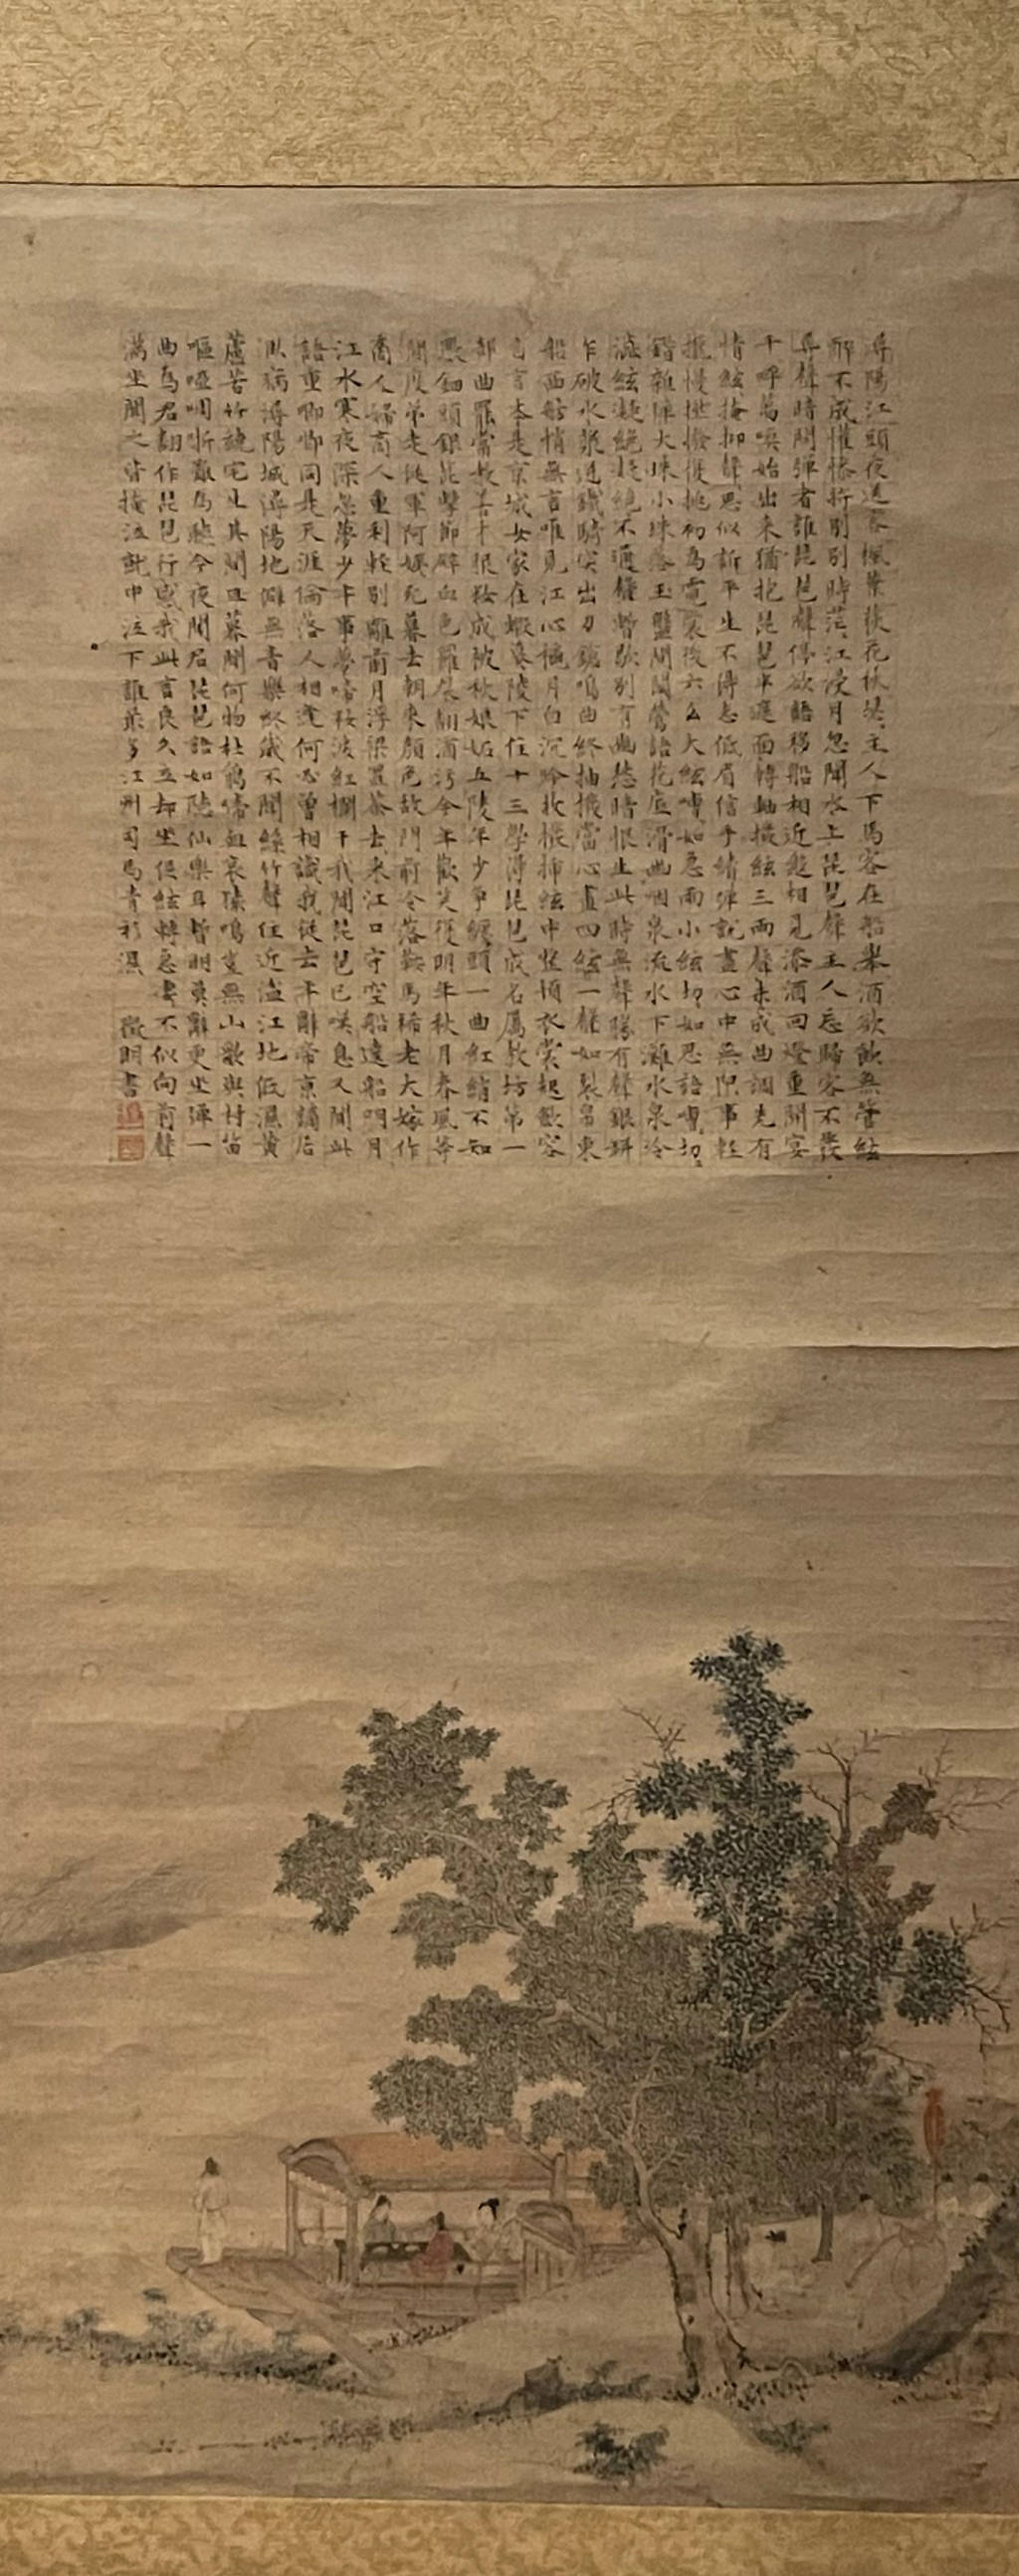 潯陽江頭夜送客楓葉荻花秋瑟〻主人下馬客在船舉酒欲飲無管絃
醉不成懽慘將別別時茫〻江浸月忽聞水上琵琶聲主人忘歸客不發
尋聲暗問彈者誰琵琶聲停欲語移船相近邀相見添酒回燈重開宴
千呼萬喚始出来猶抱琵琶半遮面轉軸撥絃三兩聲未成曲調先有
情絃〻掩抑聲〻思似訴平生不得志低眉信手續〻彈說盡心中無限事輕
攏慢撚撥復挑初為霓裳後六么大絃嘈〻如急雨小絃切〻如私語嘈〻切〻
錯雜彈大珠小珠落玉盤間關鶯語花底滑幽咽泉流水下灘水泉冷
澁絃凝絕凝絕不通聲暫歇別有幽愁暗恨生此時無聲勝有聲銀缾
乍破水漿迸鐵騎突出刀鎗鳴曲終抽撥當心畫四絃一聲如裂帛東
船西舫悄無言唯見江心秋月白沉吟收撥插絃中整頓衣裳起斂容
自言本是京城女家在蝦蟇陵下住十三學得琵琶成名屬教坊第一
部曲罷常教善才服妝成每被秋娘妬五陵年少爭纏頭一曲紅綃不知
數鈿頭銀篦擊節碎血色羅裙翻酒污今年歡笑復明年秋月春風等
閒度弟走從軍阿姨死暮去朝来顏色故門前冷落鞍馬稀老大嫁作
商人婦商人重利輕別離前月浮梁買茶去来江口守空船遶船明月
江水寒夜深忽夢少年事夢啼妝淚紅闌干我聞琵琶已嘆息又聞此
語重唧唧同是天涯淪落人相逢何必曾相識我從去年辭帝京謫居
臥病潯陽城潯陽地僻無音樂終歲不聞絲竹聲住近湓江地低濕黃
蘆苦竹繞宅生其間旦暮聞何物杜鵑啼血哀猿鳴豈無山歌與村笛
嘔啞啁哳難為聽今夜聞君琵琶語如聽仙樂耳暫明莫辭更坐彈一
曲為君翻作琵琶行感我此言良久立却坐促絃轉急淒〻不似向前聲
滿坐聞之皆掩泣就中泣下誰最多江州司馬青衫濕 徵明書